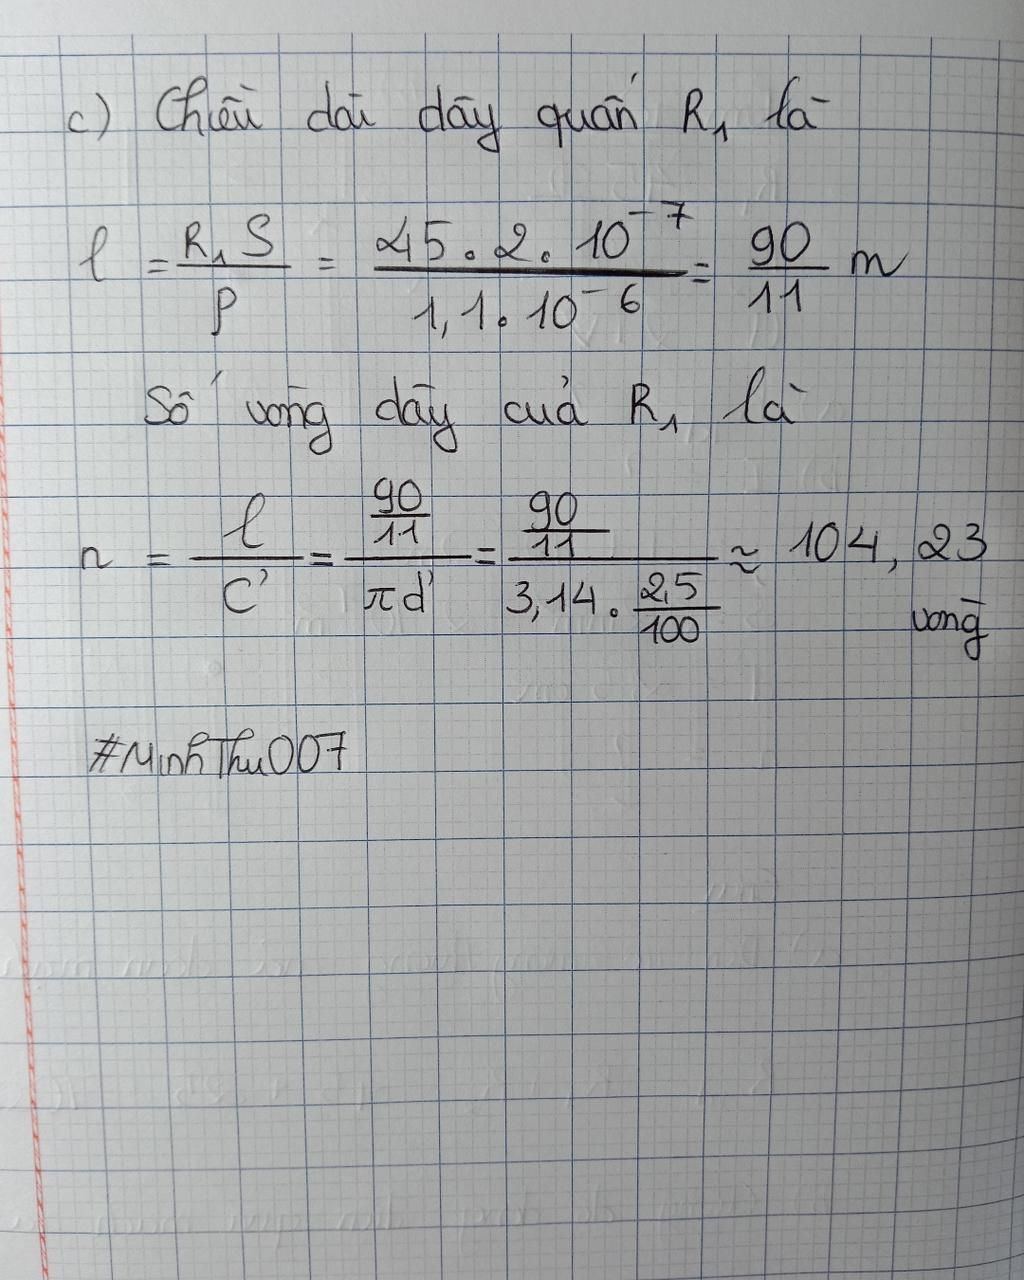 c) Chiều dài dây quấn R₁ là
l = R₁ S / ρ = 45 . 2 . 10⁻⁷ / 1,1 . 10⁻⁶ = 90/11 m
Số vòng dây của R₁ là
n = l / C' = (90/11) / πd' = (90/11) / (3,14 . 2,5/100) ≈ 104,23 vòng
#MinhThu007